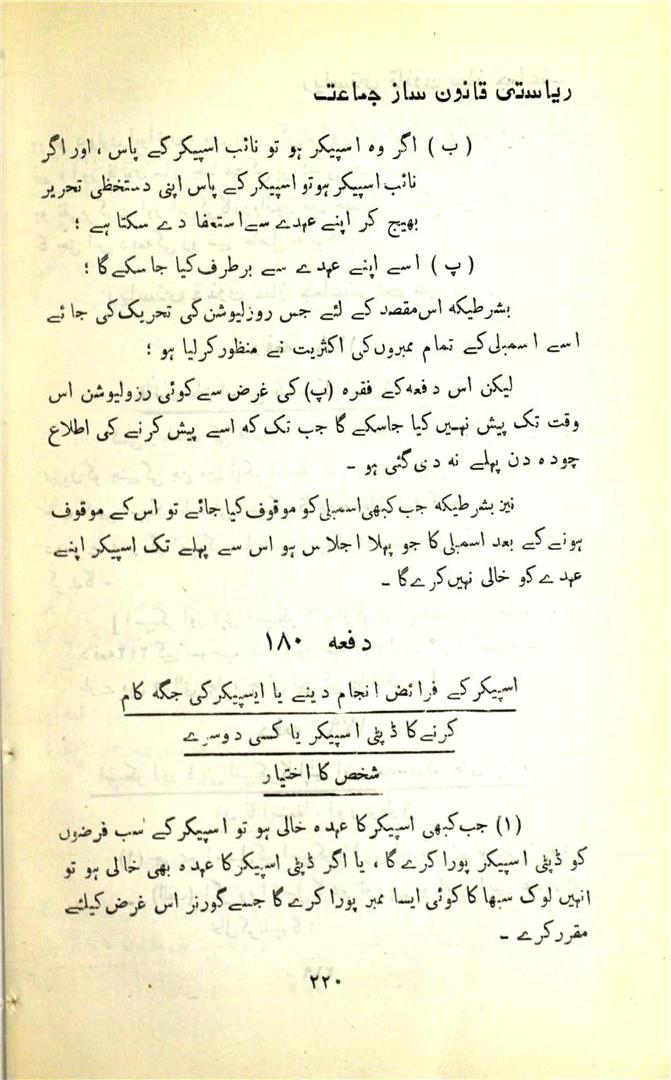 ریاستی قانون ساز جماعت
(ب) اگر وہ اسپیکر ہو تو نائب اسپیکر کے پاس ، اور اگر
نائب اسپیکر ہو تو اسپیکر کے پاس اپنی دستخطی تحریر
بھیج کر اپنے عہدے سے استعفا دے سکتا ہے ؛
(پ) اسے اپنے عہدے سے برطرف کیا جا سکے گا ؛
بشرطیکہ اس مقصد کے لئے جس روزلیوشن کی تحریک کی جائے
اسے اسمبلی کے تمام ممبروں کی اکثریت نے منظور کر لیا ہو ؛
لیکن اس دفعہ کے فقرہ (پ) کی غرض سے کوئی رزولیوشن اس
وقت تک پیش نہیں کیا جاسکے گا جب تک کہ اسے پیش کرنے کی اطلاع
چودہ دن پہلے نہ دی گئی ہو ۔
نیز بشرطیکہ جب کبھی اسمبلی کو موقوف کیا جائے تو اس کے موقوف
ہونے کے بعد اسمبلی کا جو پہلا اجلاس ہو اس سے پہلے تک اسپیکر اپنے
عہدے کو خالی نہیں کرے گا ۔
دفعہ ۱۸۰
اسپیکر کے فرائض انجام دینے یا ایسپیکر کی جگہ کام
کرنے کا ڈپٹی اسپیکر یا کسی دوسرے
شخص کا اختیار
(۱) جب کبھی اسپیکر کا عہدہ خالی ہو تو اسپیکر کے سب فرضوں
کو ڈپٹی اسپیکر پورا کرے گا ، یا اگر ڈپٹی اسپیکر کا عہدہ بھی خالی ہو تو
انہیں لوک سبھا کا کوئی ایسا ممبر پورا کرے گا جسے گورنر اس غرض کیلئے
مقرر کرے ۔
۲۲۰